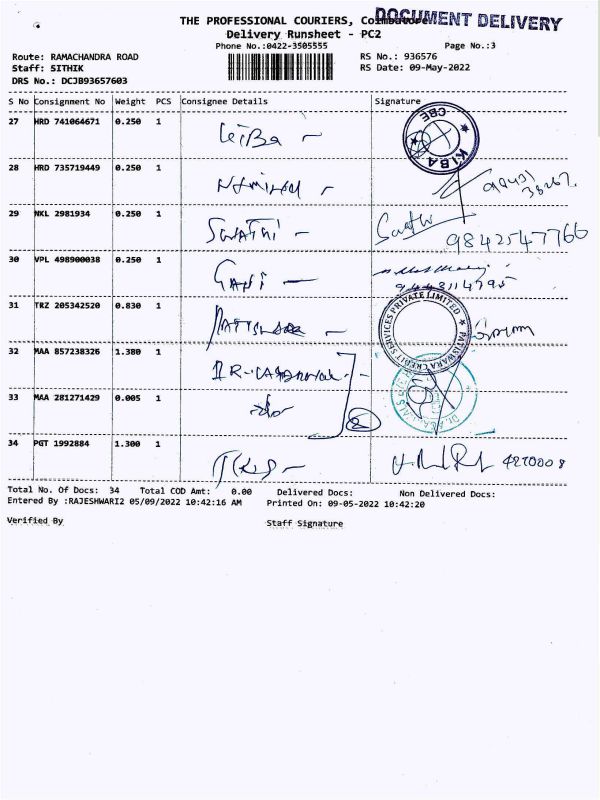 THE PROFESSIONAL COURIERS, Coimbatore
DOCUMENT DELIVERY
Delivery Runsheet - PC2
Phone No.:0422-3505555
Page No.:3
Route: RAMACHANDRA ROAD
RS No.: 936576
Staff: SITHIK
RS Date: 09-May-2022
DRS No.: DCJB93657603
S No Consignment No Weight PCS Consignee Details Signature
27 HRD 741064671 0.250 1 KIBA CBE
28 HRD 735719449 0.250 1
29 NKL 2981934 0.250 1 SWATHI 9842547766
30 VPL 498900038 0.250 1
31 TRZ 205342520 0.830 1 PATISWARA CREDIT SERVICES PRIVATE LIMITED
32 MAA 857238326 1.380 1
33 MAA 281271429 0.005 1 2
34 PGT 1992884 1.300 1
Total No. Of Docs: 34 Total COD Amt: 0.00 Delivered Docs: Non Delivered Docs:
Entered By :RAJESHWARI2 05/09/2022 10:42:16 AM Printed On: 09-05-2022 10:42:20
Verified By Staff Signature